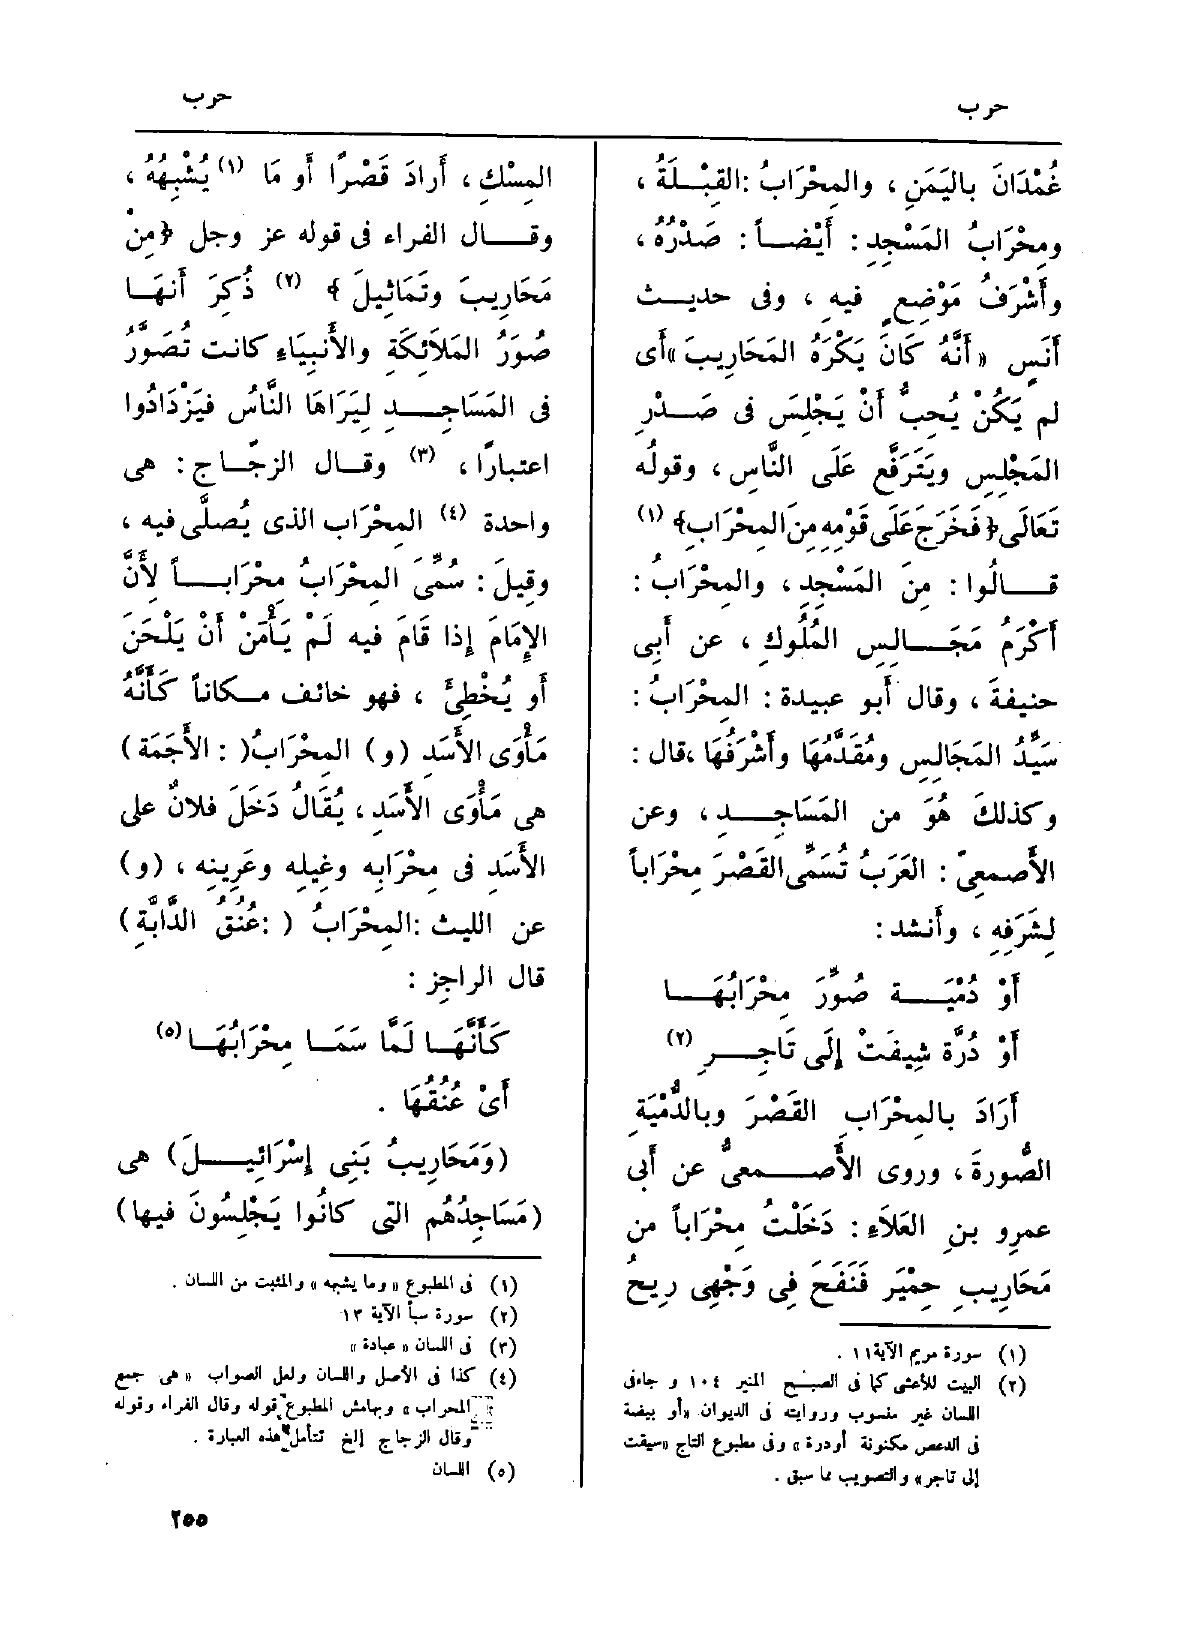 حرب
حرب
غُمْدَانَ بالیَمَنِ ، والمِحْرَابُ :القِبْلَةُ ،
ومِحْرَابُ المَسْجِدِ : أَيْضاً : صَدْرُهُ ،
وأَشْرَفُ مَوْضِعٍ فيه ، وفى حديث
أَنَسٍ « أَنَّهُ كَانَ يَكْرَهُ المَحَارِيبَ »أَى
لم يَكُنْ يُحِبُّ أَنْ يَجْلِسَ فى صَدْرِ
المَجْلِسِ ويَتَرَفَّع عَلَى النَّاسِ ، وقولُه
تَعَالَى ﴿فَخَرَجَ عَلَى قَوْمِهِ مِنَ المِحْرَابِ﴾ (١)
قالُوا : مِنَ المَسْجِدِ ، والمِحْرَابُ :
أَكْرَمُ مَجَالِسِ المُلُوكِ ، عن أَبِى
حنيفةَ ، وقال أَبو عبيدة : المِحْرَابُ :
سَيِّدُ المَجَالِسِ ومُقَدَّمُهَا وأَشْرَفُهَا ،قال :
وكذلكَ هُوَ من المَسَاجِدِ ، وعن
الأَصمعىّ : العَرَبُ تُسَمِّى القَصْرَ مِحْرَاباً
لِشَرَفِه ، وأَنشد :
أَوْ دُمْيَة صُوِّرَ مِحْرَابُهَا
أَوْ دُرَّة شِيفَتْ إِلَى تَاجِرِ (٢)
أَرَادَ بالمِحْرَابِ القَصْرَ وبالدُّمْيَةِ
الصُّورةَ ، وروى الأَصمعىُّ عن أَبى
عمرِو بنِ العَلَاءِ : دَخَلْتُ مِحْرَاباً من
مَحَارِيبِ حِمْيَرَ فَنَفَحَ فِى وَجْهِى رِيحُ
(١) سورة مريم الآية ١١ .
(٢) البيت للأعشى كما فى الصبح المنير ١٠٤ و جاءفى
اللسان غير منسوب وروايته فى الديوان «أو بيضة
فى الدعص مكنونة أودرة» وفى مطبوع التاج «سيقت
إلى تاجر» والتصويب مما سبق .
المِسْكِ ، أَرادَ قَصْرًا أَو مَا (١) يُشْبِهُهُ ،
وقال الفراء فى قوله عز وجل ﴿مِنْ
مَحَارِيبَ وتَمَاثِيلَ ﴾ (٢) ذُكِرَ أَنهَا
صُوَرُ المَلَائِكَةِ والأَنْبِيَاءِ كانت تُصَوَّرُ
فى المَسَاجِدِ لِيَرَاهَا النَّاسُ فيَزْدَادُوا
اعتبارًا ، (٣) وقال الزجّاج : هى
واحدة (٤) المِحْرَاب الذى يُصلَّى فيه ،
وقِيلَ : سُمِّىَ المِحْرَابُ مِحْرَاباً لأَنَّ
الإِمَامَ إِذا قَامَ فيه لَمْ يَأْمَنْ أَنْ يَلْحَنَ
أَو يُخْطِئَ ، فهو خائف مكاناً كَأَنَّهُ
مَأْوَى الأَسَدِ (و) المِحْرَابُ( : الأَجَمَة )
هى مَأْوَى الأَسَدِ ، يُقَالُ دَخَلَ فلانٌ على
الأَسَدِ فى مِحْرَابِه وغِيلِه وعَرِينِه ، (و )
عن الليث :المِحْرَابُ ( :عُنُقُ الدَّابَّةِ )
قال الراجز :
كَأَنَّهَا لَمَّا سَمَا مِحْرَابُهَا (٥)
أَىْ عُنُقُهَا .
(وَمَحَارِيبُ بَنِى إِسْرَائِيلَ) هى
(مَسَاجِدُهُم التى كَانُوا يَجْلِسُونَ فيها)
(١) فى المطبوع «وما يشبهه» والمثبت من اللسان .
(٢) سورة سبأ الآية ١٣
(٣) فى اللسان « عبادة »
(٤) كذا فى الأصل واللسان ولعل الصواب « هى جمع
المحراب » وبهامش المطبوع قوله وقال الفراء وقوله
وقال الزجاج إلخ تتأمل هذه العبارة .
(٥) اللسان
٢٥٥